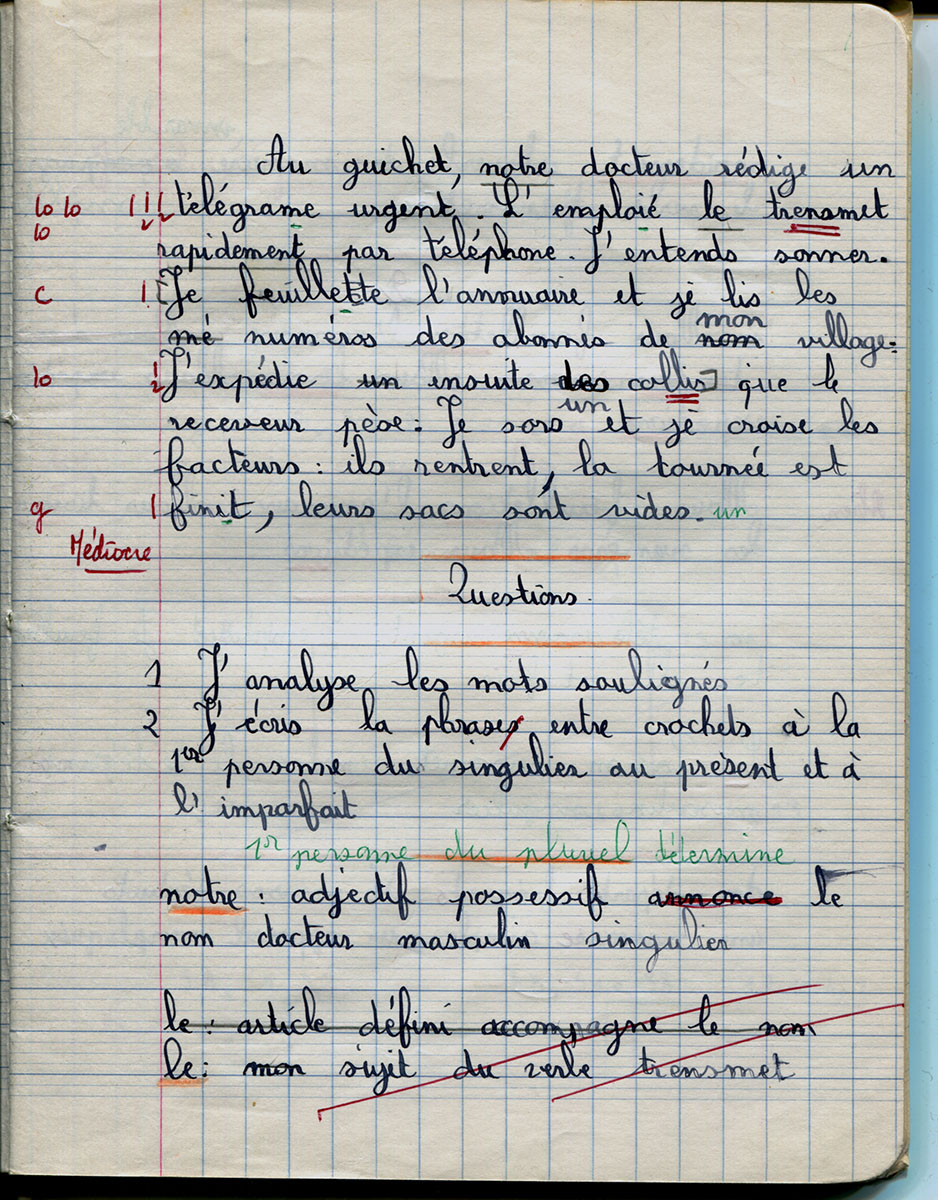 Au guichet, notre docteur rédige un
lo lo télégrame urgent. L'emploié le trensmet
lo rapidement par téléphone. J'entends sonner.
c [Je feuillette l'annuaire et je lis les
mon
mé numéros des abonnés de nom village.
lo J'expédie un ensuite des collis] que le
un
receveur pèse. Je sors et je croise les
facteurs : ils rentrent, la tournée est
g finit, leurs sacs sont vides. un
Médiocre
Questions.
1 J'analyse les mots soulignés
2 J'écris la phrases entre crochets à la
1er personne du singulier au présent et à
l'imparfait
1er personne du pluriel détermine
notre : adjectif possessif annonce le
nom docteur masculin singulier
le : article défini accompagne le nom
le : mon sujet du verbe trensmet